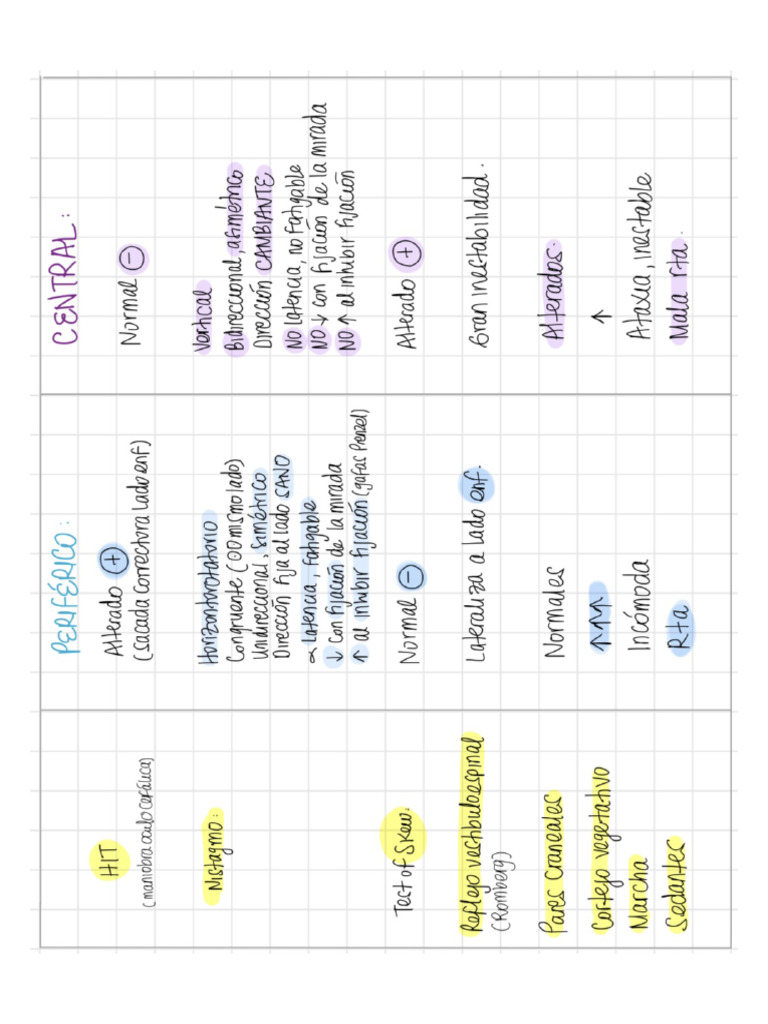 PERIFÉRICO:
CENTRAL:
HIT
(maniobra oculo cefálica)
Alterado (+)
(sacada correctora lado enf)
Normal (-)
Nistagmo:
Horizontorotatorio
Congruente (OO mismo lado)
Unidireccional, simétrico
Dirección fija al lado SANO
∝ Latencia, Fatigable
↓ con fijación de la mirada
↑ al inhibir fijación (gafas Frenzel)
Vertical
Bidireccional, asimétrico
Dirección CAMBIANTE
NO latencia, no Fatigable
NO ↓ con fijación de la mirada
NO ↑ al inhibir fijación
Test of Skew.
Normal (-)
Alterado (+)
Reflejo vestibuloespinal
(Romberg)
Lateraliza a lado enf.
Gran inestabilidad.
Pares Craneales
Normales
Alterados.
Cortejo vegetativo
↑↑↑
↑
Marcha
Incómoda
Ataxia, inestable
Sedantes
Rta
Mala rta.